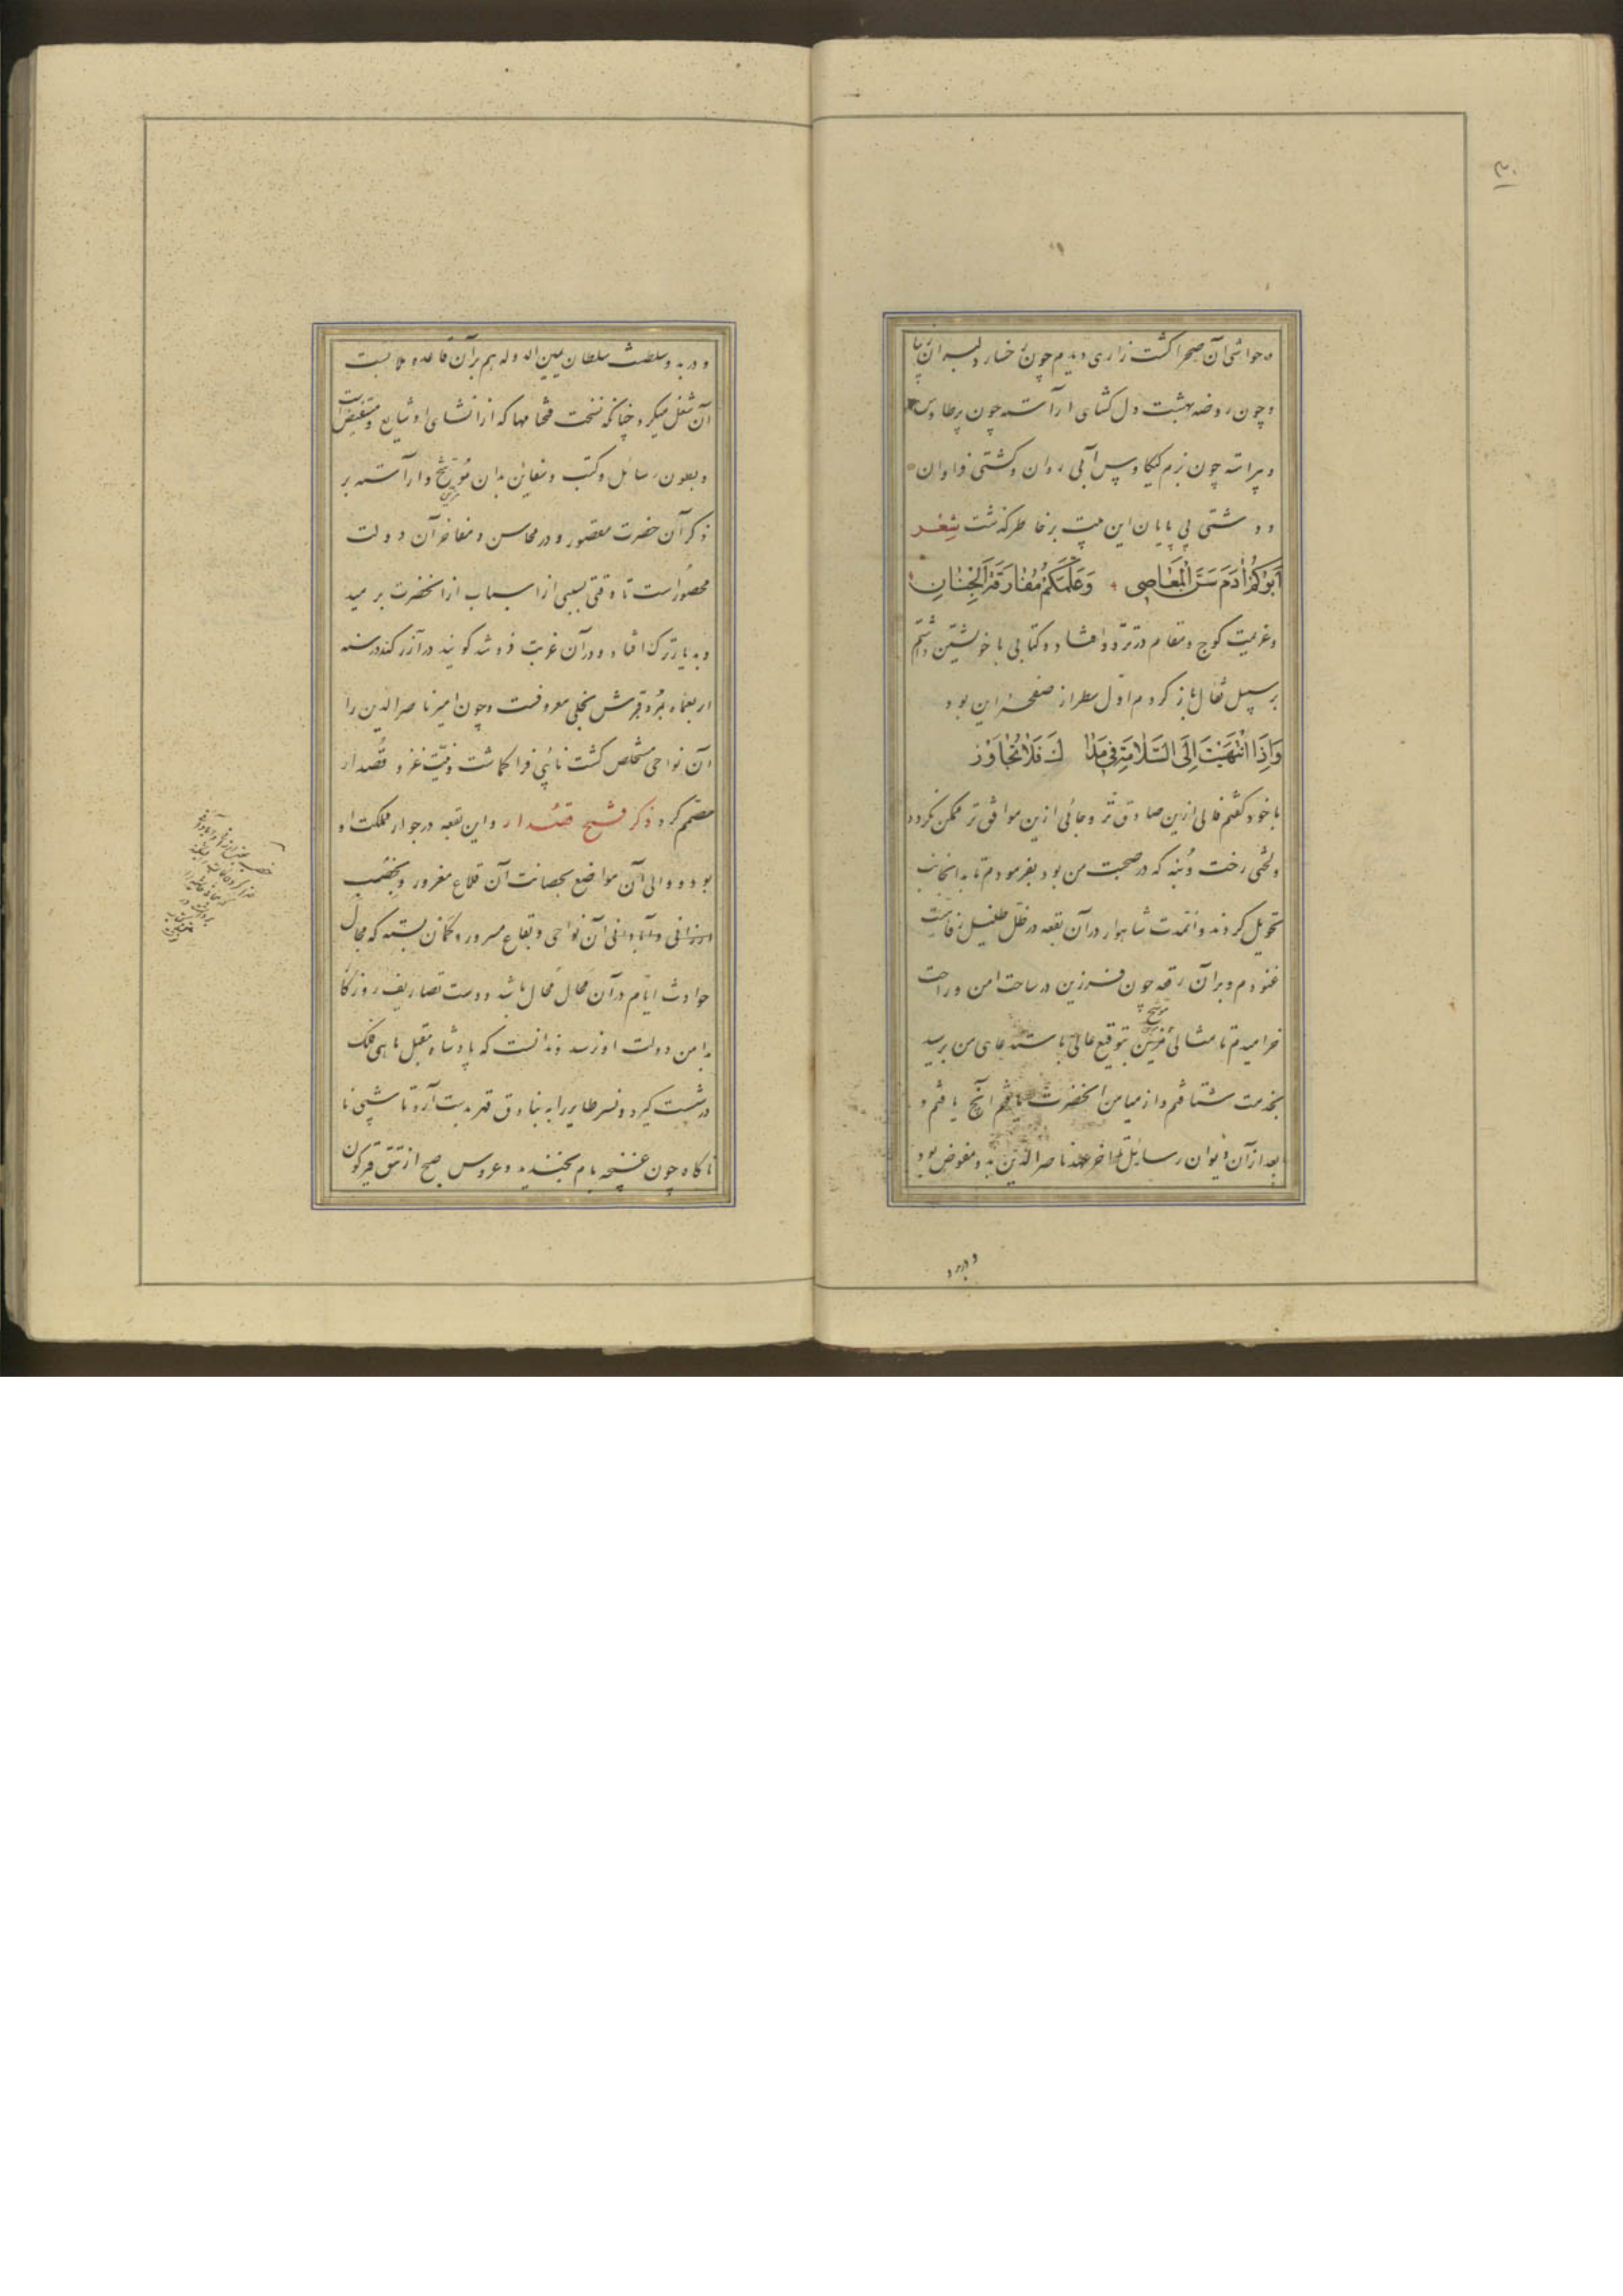 و حواشی آن صحرا کشت زاری دیدم چون رخسار دلبران زیبا
و چون روضه بهشت دل کشای آراسته چون پر طاوس
و پیراسته چون بزم کیکاوس آبی روان و کشتی فراوان
و دشتی بی پایان این بیت بر خاطر گذشت شعر
أبوكم آدم سن المعاصي وعلمكم مفارقة الجنان
و عزیمت کوچ و مقام در تردد افتاد و کتابی با خویشتن داشتم
بر سبیل تفال باز کردم اول سطر از صفحه این بود
وإذا انتهيت إلى السلامة في مدا ك فلا تجاوز
با خود گفتم فالی ازین صادق تر و جائی ازین موافق تر ممکن نگردد
و لختی رخت و بنه که در صحبت من بود بفرمودم تا بدانجانب
تحویل کردند و آنمدت شاهوار در آن بقعه در ظل ظلیل رفاهیت
غنودم و بر آن رقعه چون فرزین در ساحت امن و راحت
خرامیدم تا مثالی مزین بتوقیع عالی باستدعای من برسید
بخدمت شتافتم و از میامن آنحضرت یافتم آنچ یافتم و
بعد از آن دیوان رسایل تا آخر عهد ناصرالدین بدو مفوض بود
و در بد و
و در بدو سلطنت سلطان یمین الدوله هم بر آن قاعده ملابست
آن شغل میکرد چنانکه نسخت فتحنامها که از انشای او شایع و مستفیض است
و بطون رسائل و کتب و سفاین بدان موشح و آراسته بر
ذکر آن حضرت مقصور و در محاسن و مفاخر آن دولت
محصور است تا وقتی بسببی از اسباب از آنحضرت برمید
و بدیار ترک افتاد و در آن غربت فرو شد گویند در آذرکند در سنه
اربعمأه بمرد و قبرش بجلی معروفست و چون امیر ناصرالدین را
آن نواحی مستخلص کشت نائبی فرا گماشت و نیت غزو قصدار
مصمم کرد ذکر فتح قصدار و این بقعه در جوار مملکت او
بود و والی آن مواضع بحصانت آن قلاع مغرور و بخصب
ارزانی و آبادانی آن نواحی و بقاع مسرور و گمان بسته که مجال
حوادث ایام در آن محال محال باشد و دست تصاریف روزگار
بدامن دولت او نرسد و ندانست که پادشاه مقبل ماهی فلک
در شست گیرد و نسر طایر را به بنادق قهر بدست آرد تا شبی نا
ناگاه چون غنچه بام بخندید و عروس صبح از تتق قیرگون